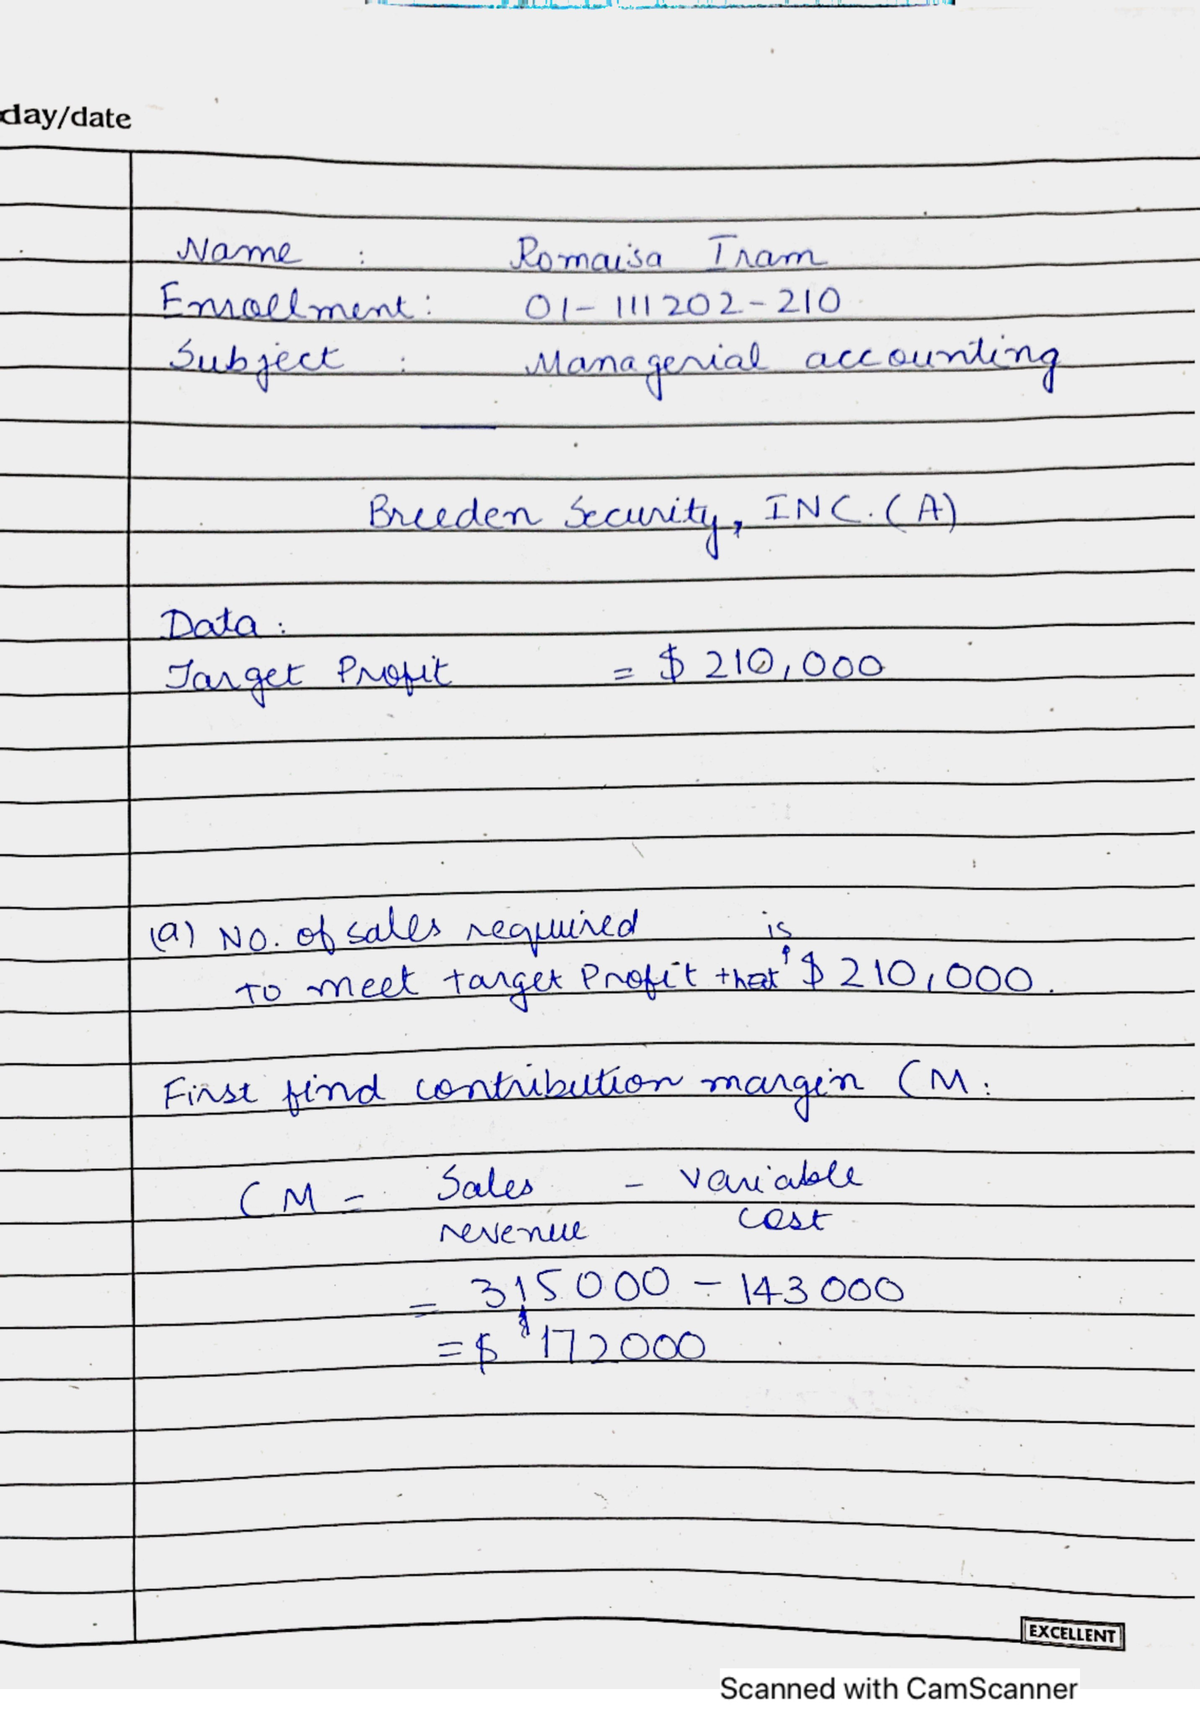 day/date
Name : Romaisa Iram
Enrollment: 01-111202-210
Subject : Managerial accounting
Breeden Security, INC. (A)
Data:
Target Profit = $ 210,000
(a) NO. of sales required is
to meet target Profit that $ 210,000.
First find contribution margin CM:
CM = Sales - variable
revenue cost
= 315000 - 143000
= $ 172000
EXCELLENT
Scanned with CamScanner